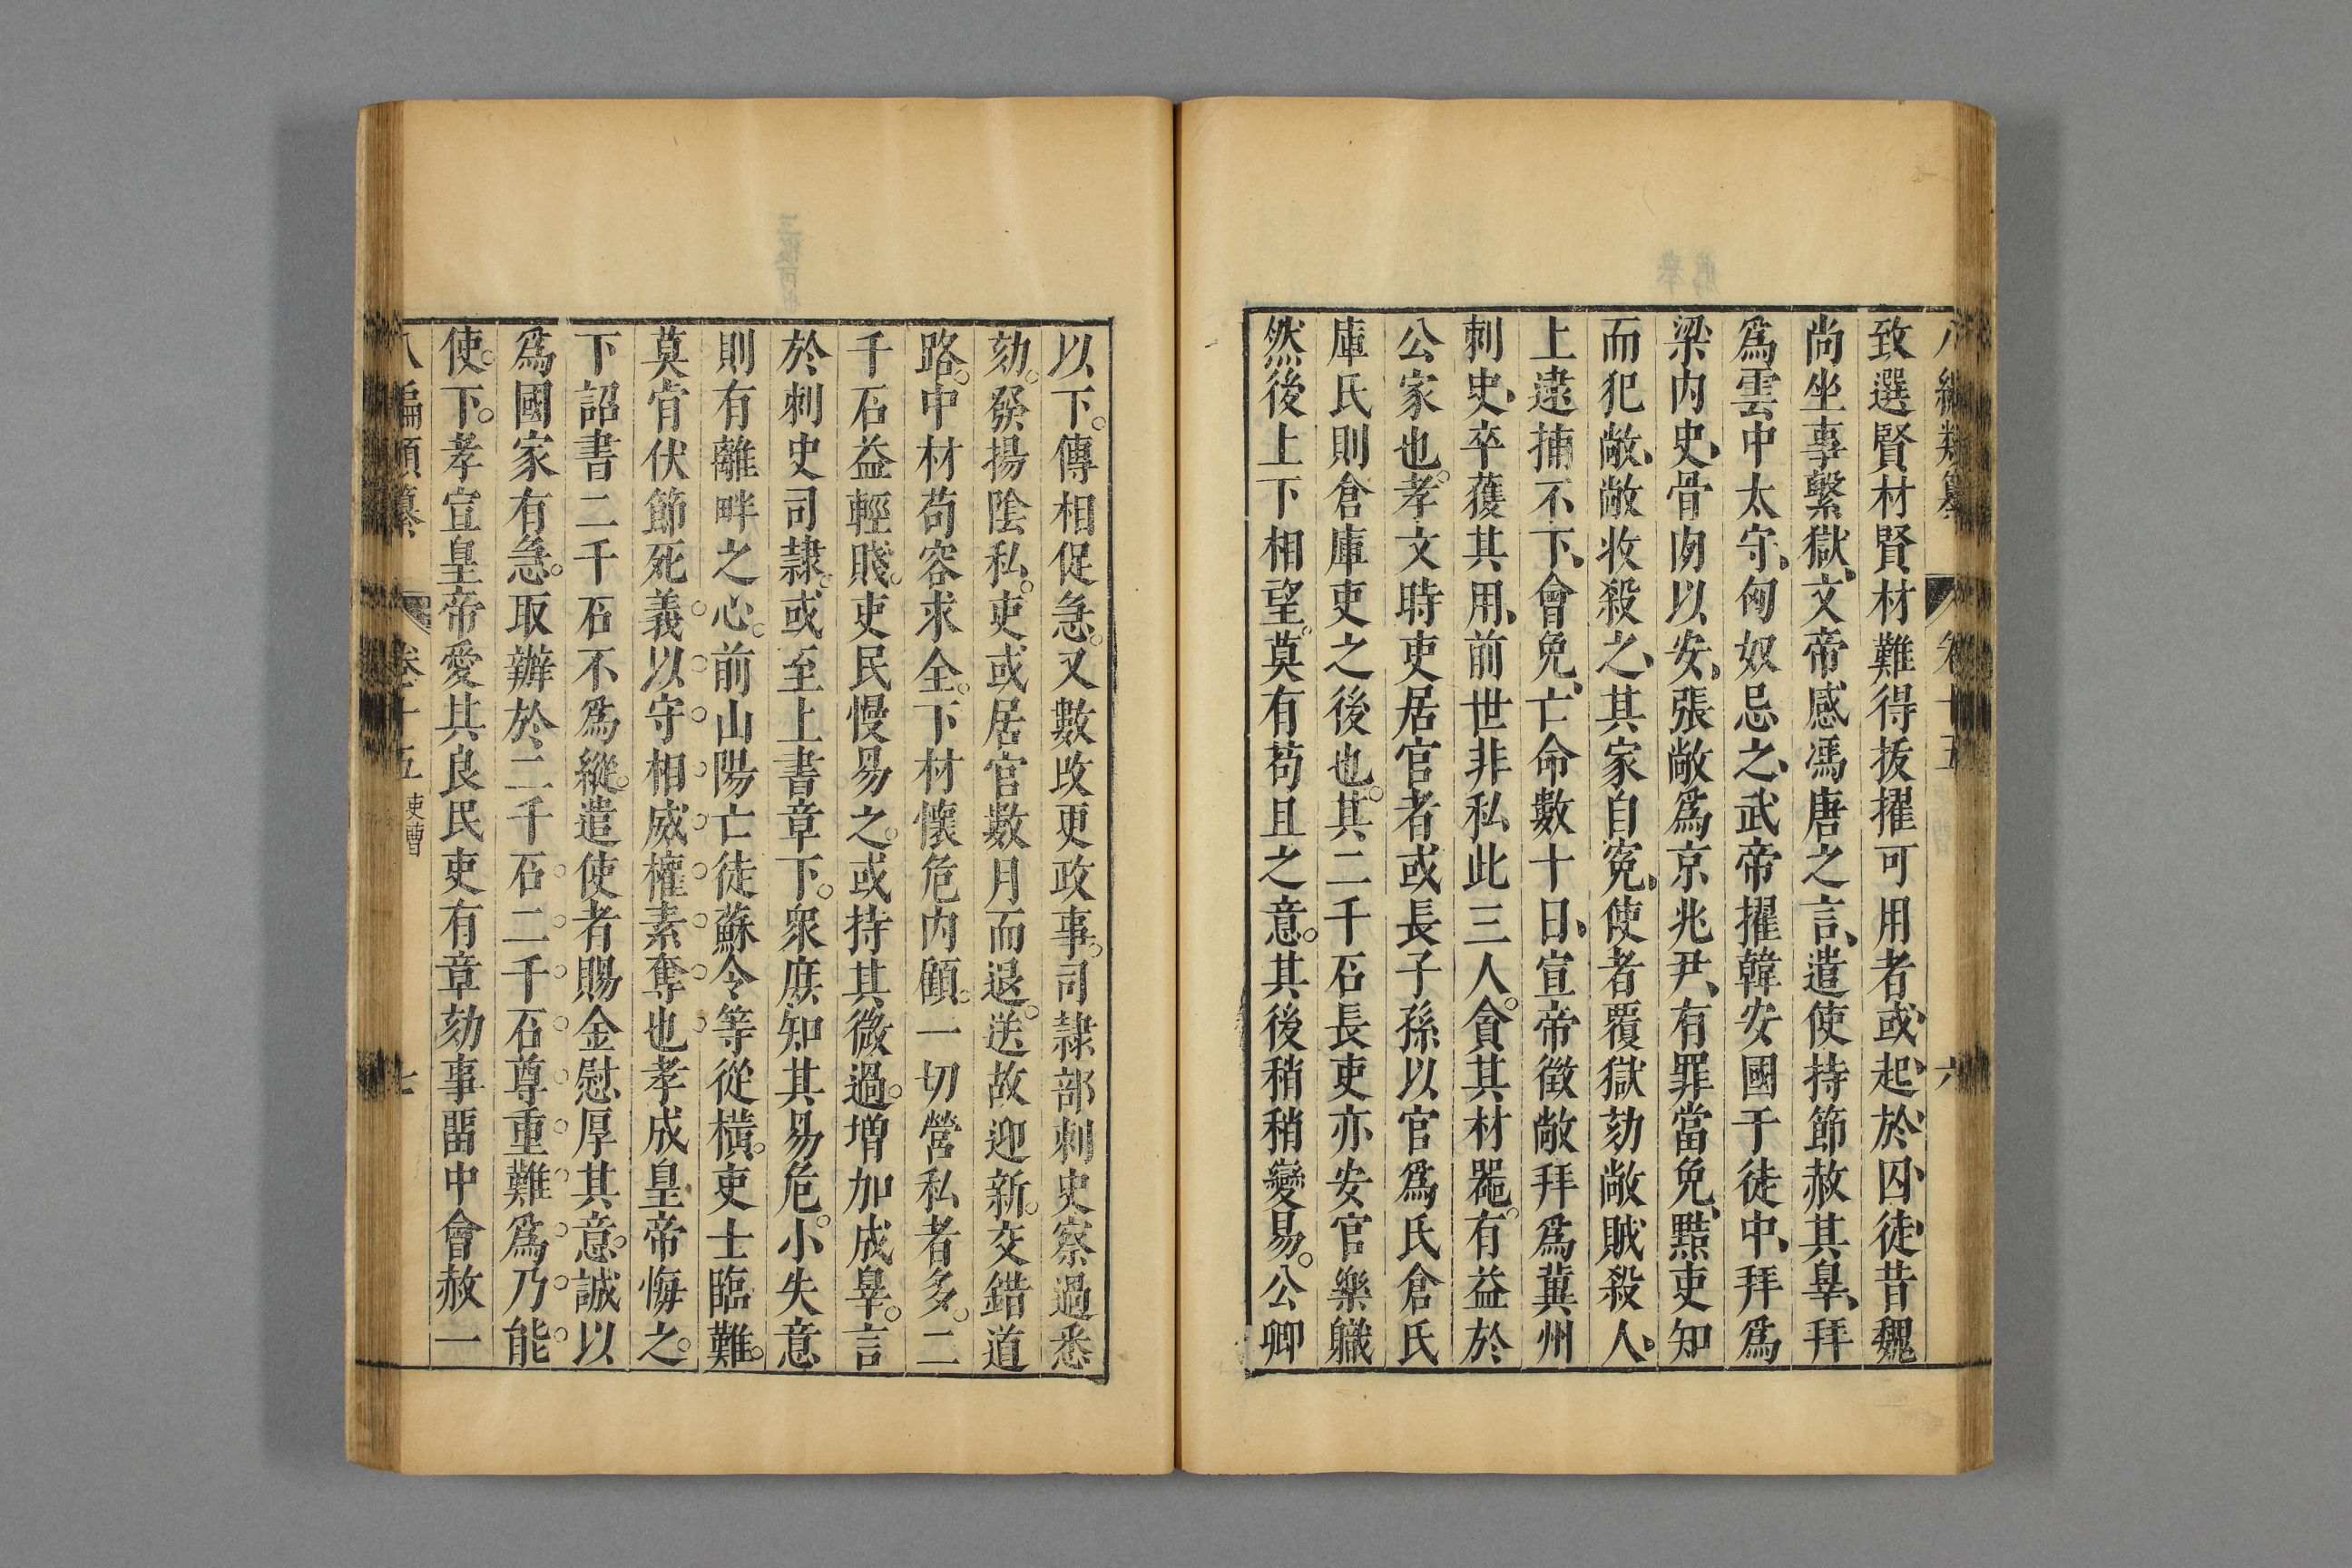 八編類纂 卷十五 六
致選賢材賢材難得拔擢可用者或起於囚徒昔魏
尚坐事繫獄文帝感馮唐之言遣使持節赦其辠拜
爲雲中太守匈奴忌之武帝擢韓安國于徒中拜爲
梁內史骨肉以安張敞爲京兆尹有罪當免黠吏知
而犯敞敞收殺之其家自寃使者覆獄劾敞賊殺人
上逮捕不下會免亡命數十日宣帝徵敞拜爲冀州
刺史卒獲其用前世非私此三人貪其材器有益於
公家也孝文時吏居官者或長子孫以官爲氏倉氏
庫氏則倉庫吏之後也其二千石長吏亦安官樂職
然後上下相望莫有苟且之意其後稍稍變易公卿
以下傳相促急又數改更政事司隷部刺史察過悉
劾發揚陰私吏或居官數月而退送故迎新交錯道
路中材苟容求全下材懷危內顧一切營私者多二
千石益輕賤吏民慢易之或持其微過增加成辠言
於刺史司隷或至上書章下衆庶知其易危小失意
則有離畔之心前山陽亡徒蘇令等從橫吏士臨難
莫肯伏節死義以守相威權素奪也孝成皇帝悔之
下詔書二千石不爲縱遣使者賜金慰厚其意誠以
爲國家有急取辦於二千石二千石尊重難爲乃能
使下孝宣皇帝愛其良民吏有章劾事畱中會赦一
八編類纂 卷十五 吏曹 七